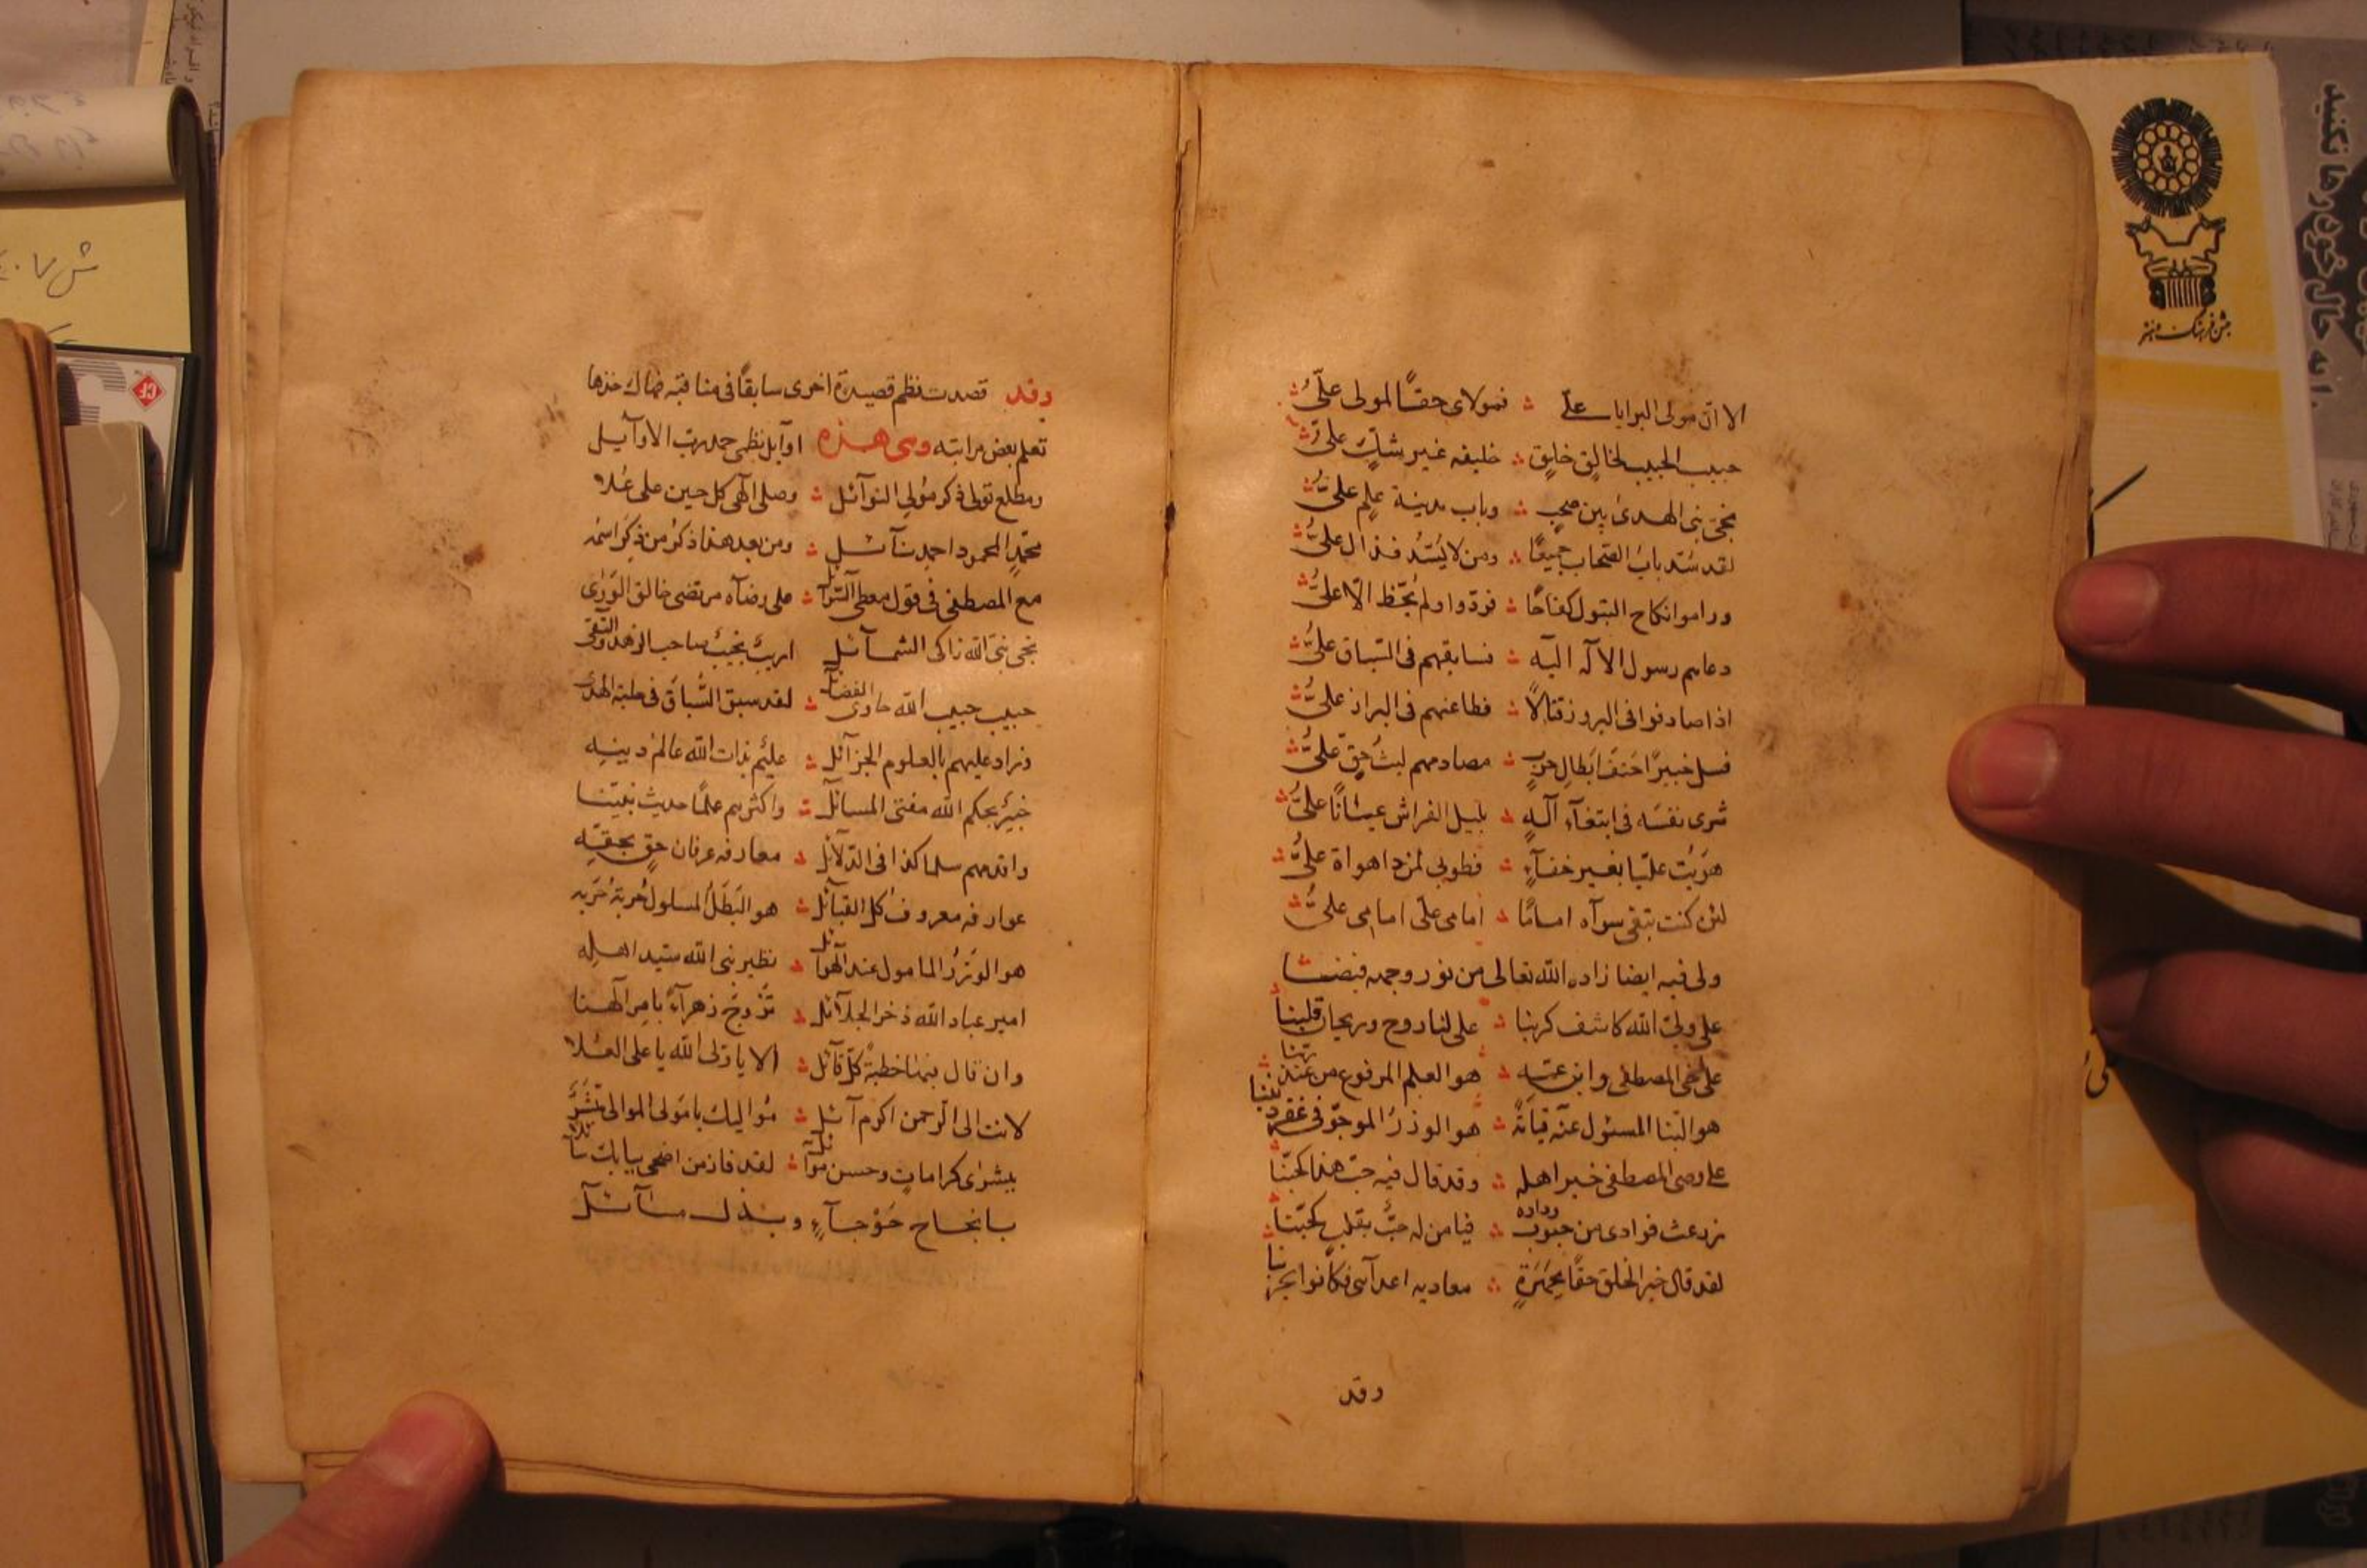 الا ان مولی البرایا علی ؞ فمولای حقا لمولی علیّ
حبیب الحبیب لخالق خلیق ؞ خلیفه غیر شکّ علیّ
نجیّ نبی الهدی بین صحب ؞ وباب مدینة علم علیّ
لقد سُدّ بابُ الصّحاب جمیعًا ؞ ومن لا یُسَدُّ فذاك علیّ
وراموا نکاح البتول کفاحًا ؞ فردّوا ولم یُحظَ الّا علیّ
دعاهم رسول الاله الیه ؞ فسابقهم فی السّباق علیّ
اذا صادفوا فی البروز قتالًا ؞ فطاعنهم فی البراز علیّ
فسل خبیرًا حتف ابطال حربٍ ؞ مصادمهم لیث حقّ علیّ
شری نفسه فی ابتغاء آلهٍ ؞ بلیل الفراش عیانًا علیّ
هویت علیّا بغیر خفآءٍ ؞ فطوبی لمن اهواه علیّ
لئن کنت تبقی سوآه امامًا ؞ امامی علی امامی علیّ
ولی فیه ایضا زاده الله تعالی من نور وجهه فیضا
علی ولیّ الله کاشف کربنا ؞ علی لنا روح وریحان قلبنا
علی اخی المصطفی وابن عمّه ؞ هو العلم المرفوع من عند ربّنا
هو النّبا المسئول عنه قیامةً ؞ هو الوزر المرجوّ فی غفر ذنبنا
علی وصی المصطفی خیر اهله ؞ وقد قال فیه حبّ هذا کحبّنا
زرعت فوادی من حبوب وداده ؞ فیا من له حبّ بقلب کحبّنا
لقد قال خیر الخلق حقًا بجهرةٍ ؞ معادیه اعدآئی فکانوا بحزبنا
وقد
وقد قصدت نظم قصیدة اخری سابقًا فی مناقبه فهاك خذها
تعلم بعض مراتبه وهی هذه اوآیل نظمی حمد ربّ الاوآیل
ومطلع تولی ذکر مولی النوآئل ؞ وصلی الهی کل حین علی عُلا
محمّد المحمود احمد ؞ ومن بعد هذا ذکر من ذکر اسمه
مع المصطفی فی قول معطی ؞ علی رضآه مرتضی خالق الوری
نجی نبیّ الله زاکی الشمآئل اریب نجیب صاحب الزهد والتقی
حبیب حبیب الله حاوی الفضائل ؞ لقد سبق السُّباق فی حلبة الهدی
وزاد علیهم بالعلوم الجزآئل ؞ علیم بذات الله عالم دینه
خبیر بحکم الله مفتی المسائل ؞ واکثرهم علمًا حدیث نبیّنا
واقدمهم سلما کذا فی الدّلآئل ؞ معارفه عرفان حقٍ بحقّه
عوارفه معروف کل القبآئل ؞ هو البطل المسلول حربة حربه
هو الوزر المامول عند الهوآئل ؞ نظیر نبی الله سیّد اهله
امیر عباد الله ذخر الجلآئل ؞ تزوّج زهرآءً بامر الهنا
وان قال بتنا خطبةً کلّ قآئل ؞ الا یا ولی الله یا علی العُلا
لانت الی الرّحمن اکرم آئل ؞ موالیك یا مولی الموالی
ببشری کرامات وحسن ؞ لقد فاز من اضحی ببابك سآئلا
بانجاح حوجآءٍ وبذل مسآئل
جشن فرهنگ و هنر